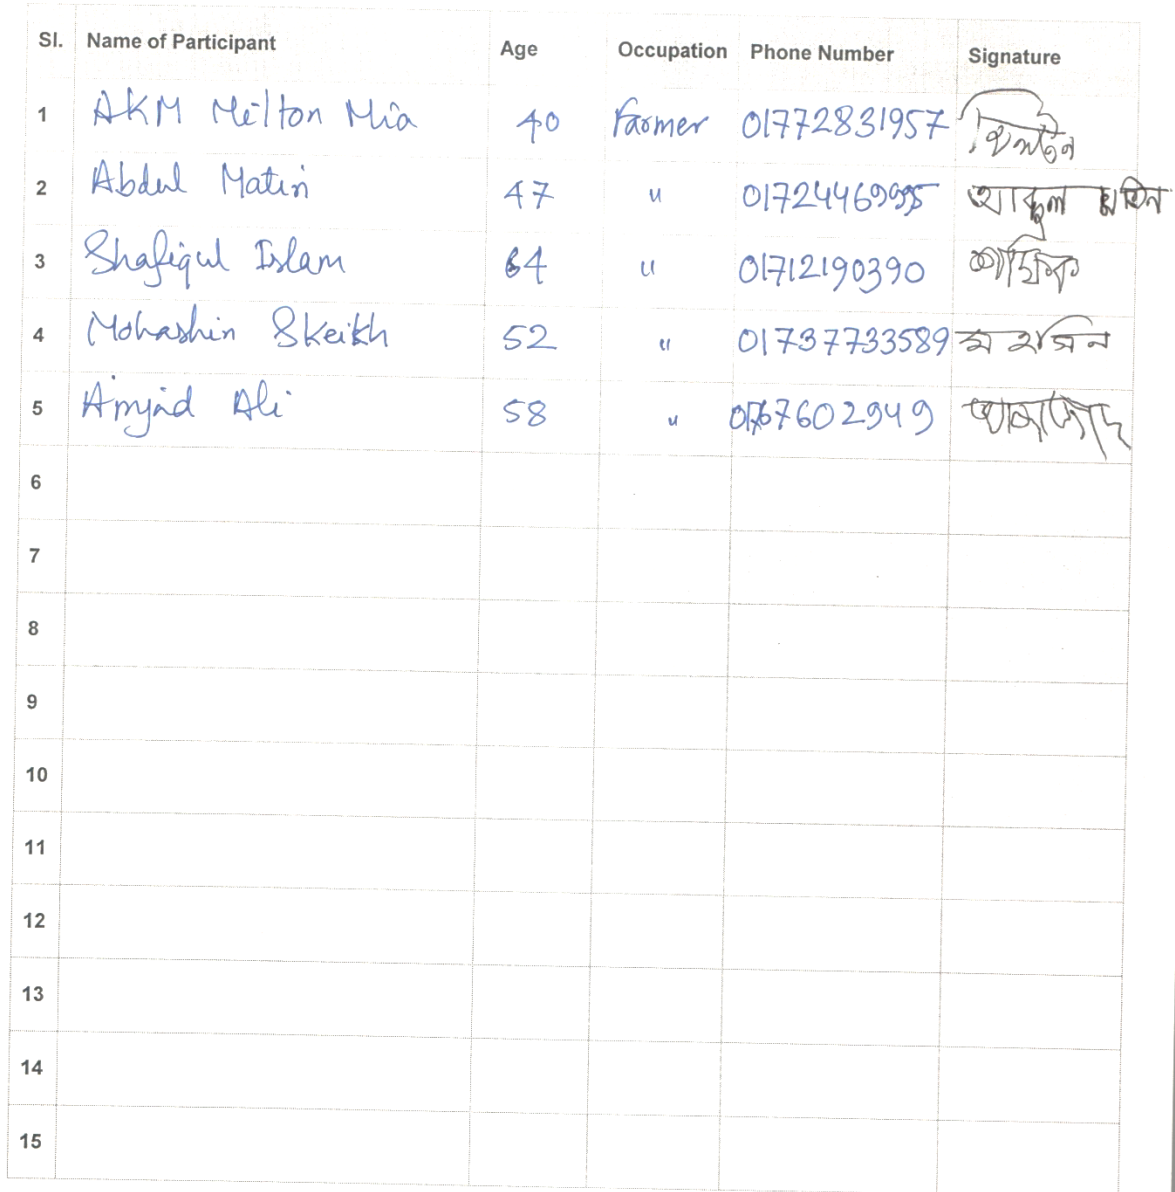 Sl. Name of Participant Age Occupation Phone Number Signature
1 AKM Milton Mia 40 Farmer 01772831957 মিলটন
2 Abdul Matin 47 " 01724469995 আব্দুল মতিন
3 Shafiqul Islam 64 " 01712190390 শফিক
4 Mohashin Skeikh 52 " 01737733589 মহসিন
5 Amjad Ali 58 " 01767602949
6
7
8
9
10
11
12
13
14
15